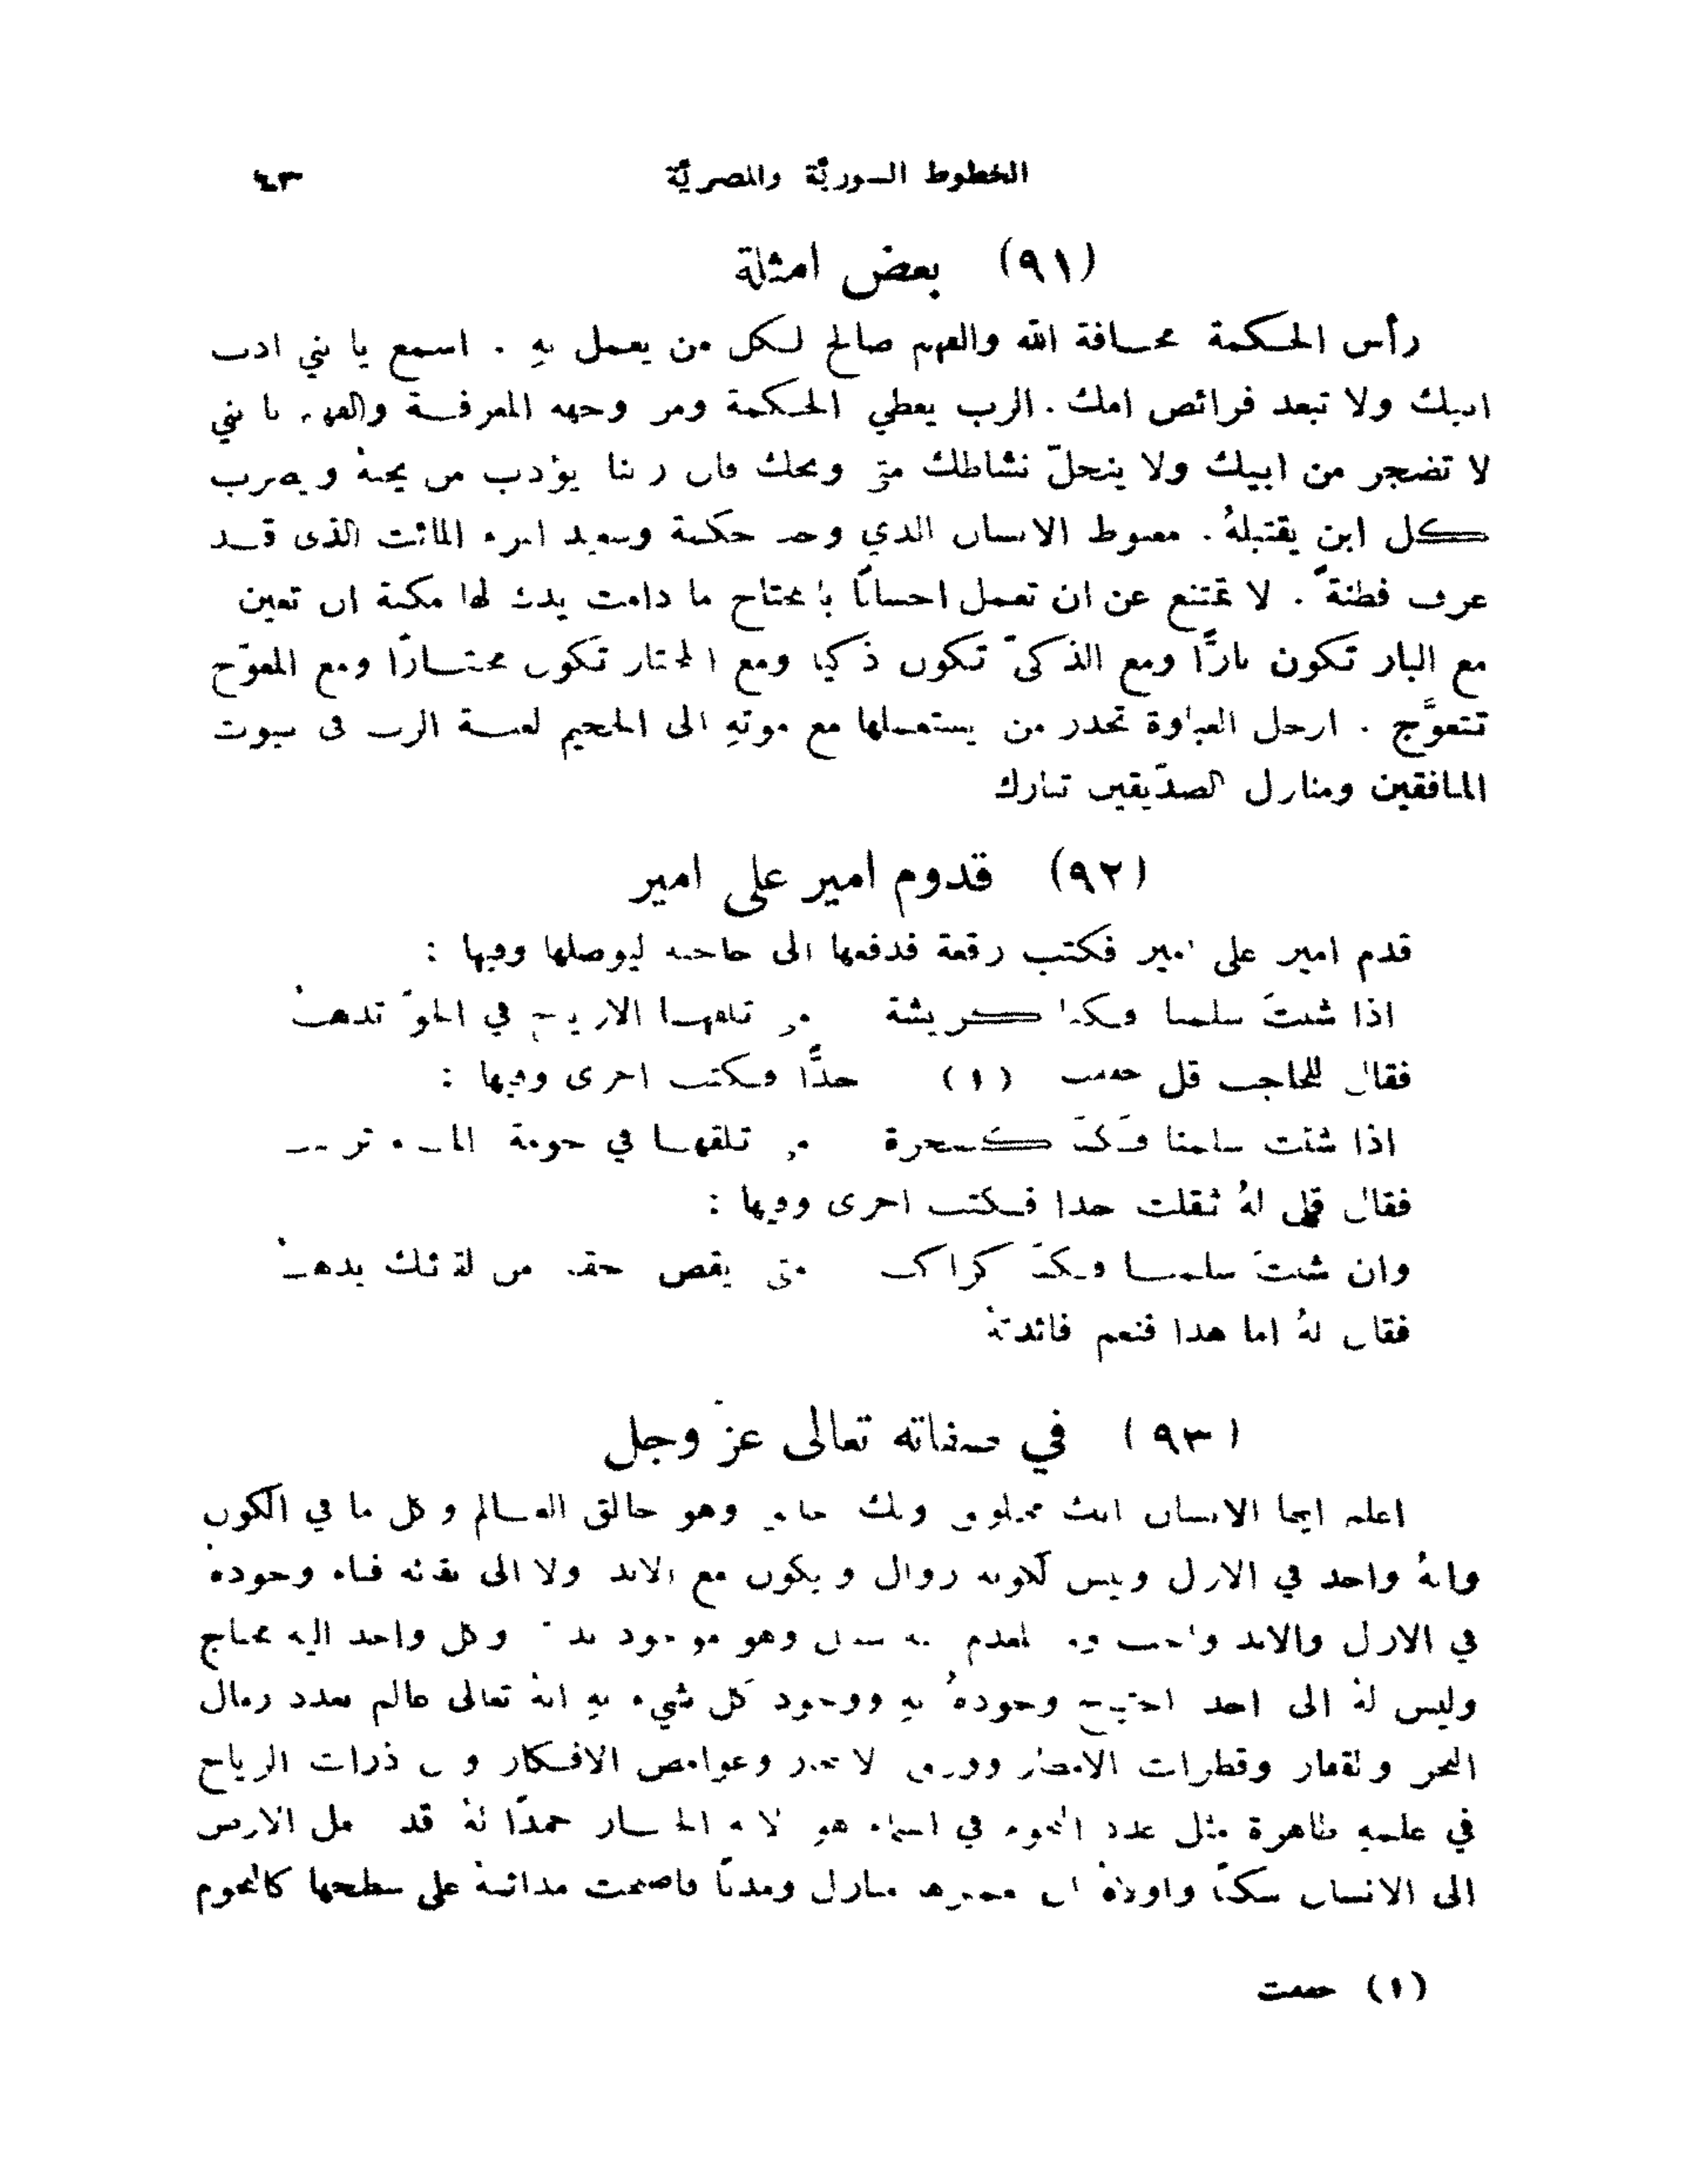 الخطوط السوريَّة والمصريَّة ٤٣
(٩١) بعض امثلة
رأس الحكمة مخافة الله والفهم صالح لكل من يعمل بهِ . اسمع يا بني ادب
ابيك ولا تبعد فرائض امك . الرب يعطي الحكمة ومن وجهه المعرفة والفهم يا بني
لا تضجر من ابيك ولا ينحلّ نشاطك متى وبخك فان ربنا يؤدب من يحبهُ ويضرب
كل ابن يقتبلهُ . مغبوط الانسان الذي وجد حكمة وسعيد امرء المائت الذى قد
عرف فطنةً . لا تمتنع عن ان تعمل احسانًا بمحتاج ما دامت يدك لها مكنة ان تعين
مع البار تكون بارًّا ومع الذكيّ تكون ذكيا ومع المختار تكون مختارًا ومع المعوّج
تتعوَّج . ارجل الغباوة تحدر من يستعملها مع موتهِ الى الجحيم لعنة الرب فى بيوت
المنافقين ومنازل الصدّيقين تبارك
(٩٢) قدوم امير على امير
قدم امير على امير فكتب رقعة فدفعها الى حاجبه ليوصلها وفيها :
اذا شئتَ سلمنا فكنا كريشة متى تلقها الارياح في الجوّ تذهبُ
فقال للحاجب قل خففت (١) جدًّا فكتب اخرى وفيها :
اذا شئت سلمنا فكنّا كصخرة متى تلقها في حومة
فقال قل لهُ ثقلت جدا فكتب اخرى وفيها :
وان شئتَ سلمنا فكنّا كراكب متى يقض حقا من لقائك يذهبُ
فقال لهُ اما هذا فنعم فائدتهُ
(٩٣) في صفاته تعالى عزّ وجل
اعلم ايها الانسان انك مخلوق ولك خالق وهو خالق العالم وكل ما في الكون
وانهُ واحد في الازل وليس لكونه زوال ويكون مع الابد ولا الى بقائه فناء وجودهُ
في الازل والابد واجب وهو موجود وكل واحد اليه محتاج
وليس لهُ الى احد احتياج وجودهُ بهِ ووجود كل شيء بهِ انهُ تعالى عالم بعدد رمال
البحر والقفار وقطرات الامطار وورق الاشجار وغوامض الافكار وان ذرات الرياح
في علمهِ ظاهرة مثل عدد النجوم في السماء هو حمدًا لهُ قد الارض
الى الانسان سكنًا واولادهُ ان منازل ومدنًا فاصبحت مدائنهُ على سطحها كالنجوم
(١) خففت